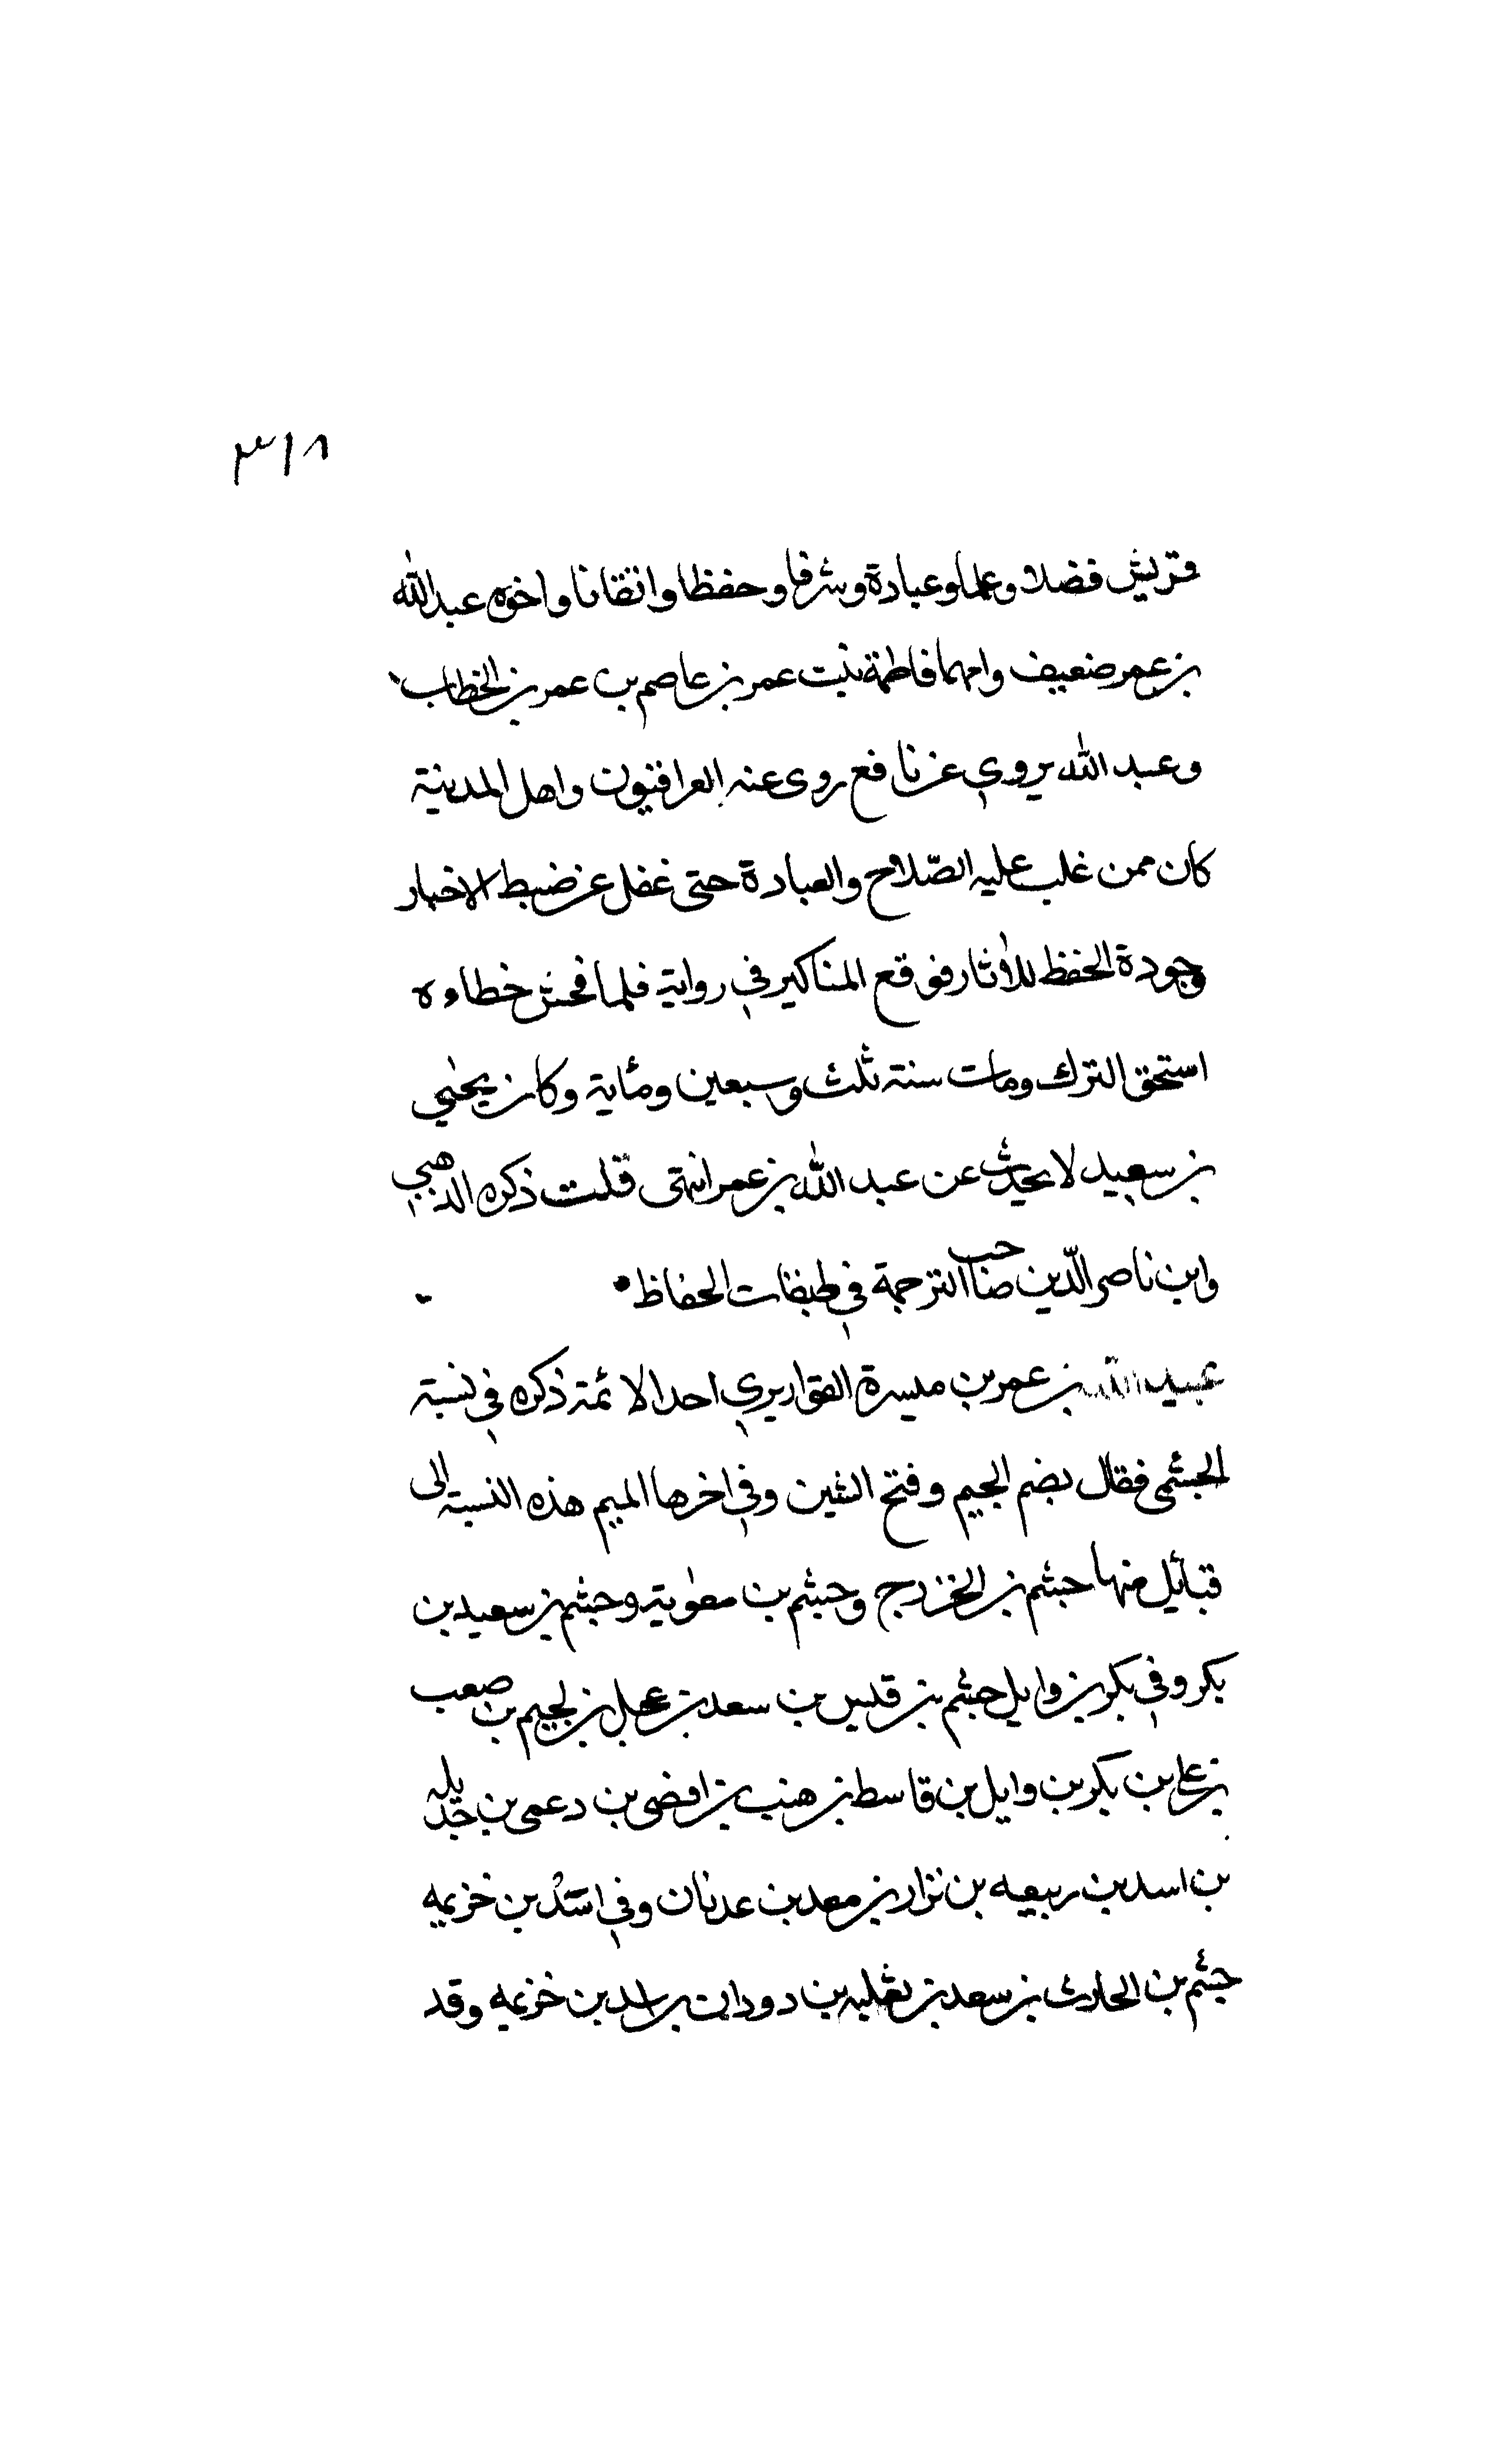 ٣١٨
قريش فضلا وعلما وعبادة وشرفا وحفظا واتقانا واخوه عبدالله
بن عمر ضعيف وامهما فاطمة بنت عمر بن عاصم بن عمر بن الخطاب
وعبد الله يروي عن نافع روى عنه العراقيون واهل المدينة
كان ممن غلب عليه الصّلاح والعبادة حتى غفل عن ضبط الاخبار
وجودة الحفظ للأثار فوقع المناكير في رواية فلما فحش خطاءوه
استحق الترك ومات سنة ثلث وسبعين ومئاية وكان يحيى
بن سعيد لا يحدث عن عبد الله بن عمر انتهى قلت ذكره الذهبي
وابن ناصر الدّين صاحب الترجمة في طبقات الحفاظ
عبيد الله بن عمر بن ميسرة القواريري احد الائمة ذكره في نسبة
الجشمى فقال بضم الجيم وفتح الشين وفي اخرها الميم هذه النسبة الى
قبائل منها جشم بن الخزرج وجشم بن معوية وجشم بن سعيد بن
بكر وفي بكر بن وايل جشم بن قيس بن سعد بن عجل بن لجيم بن صعب
بن على بن بكر بن وايل بن قاسط بن هنب بن افصى بن دعمى بن جديله
بن اسد بن ربيعه بن نزار بن معد بن عدنان وفي اسد بن خزيمه
جشم بن الحارث بن سعد بن ثعلبه بن دودان بن اسد بن خزيمه وقد